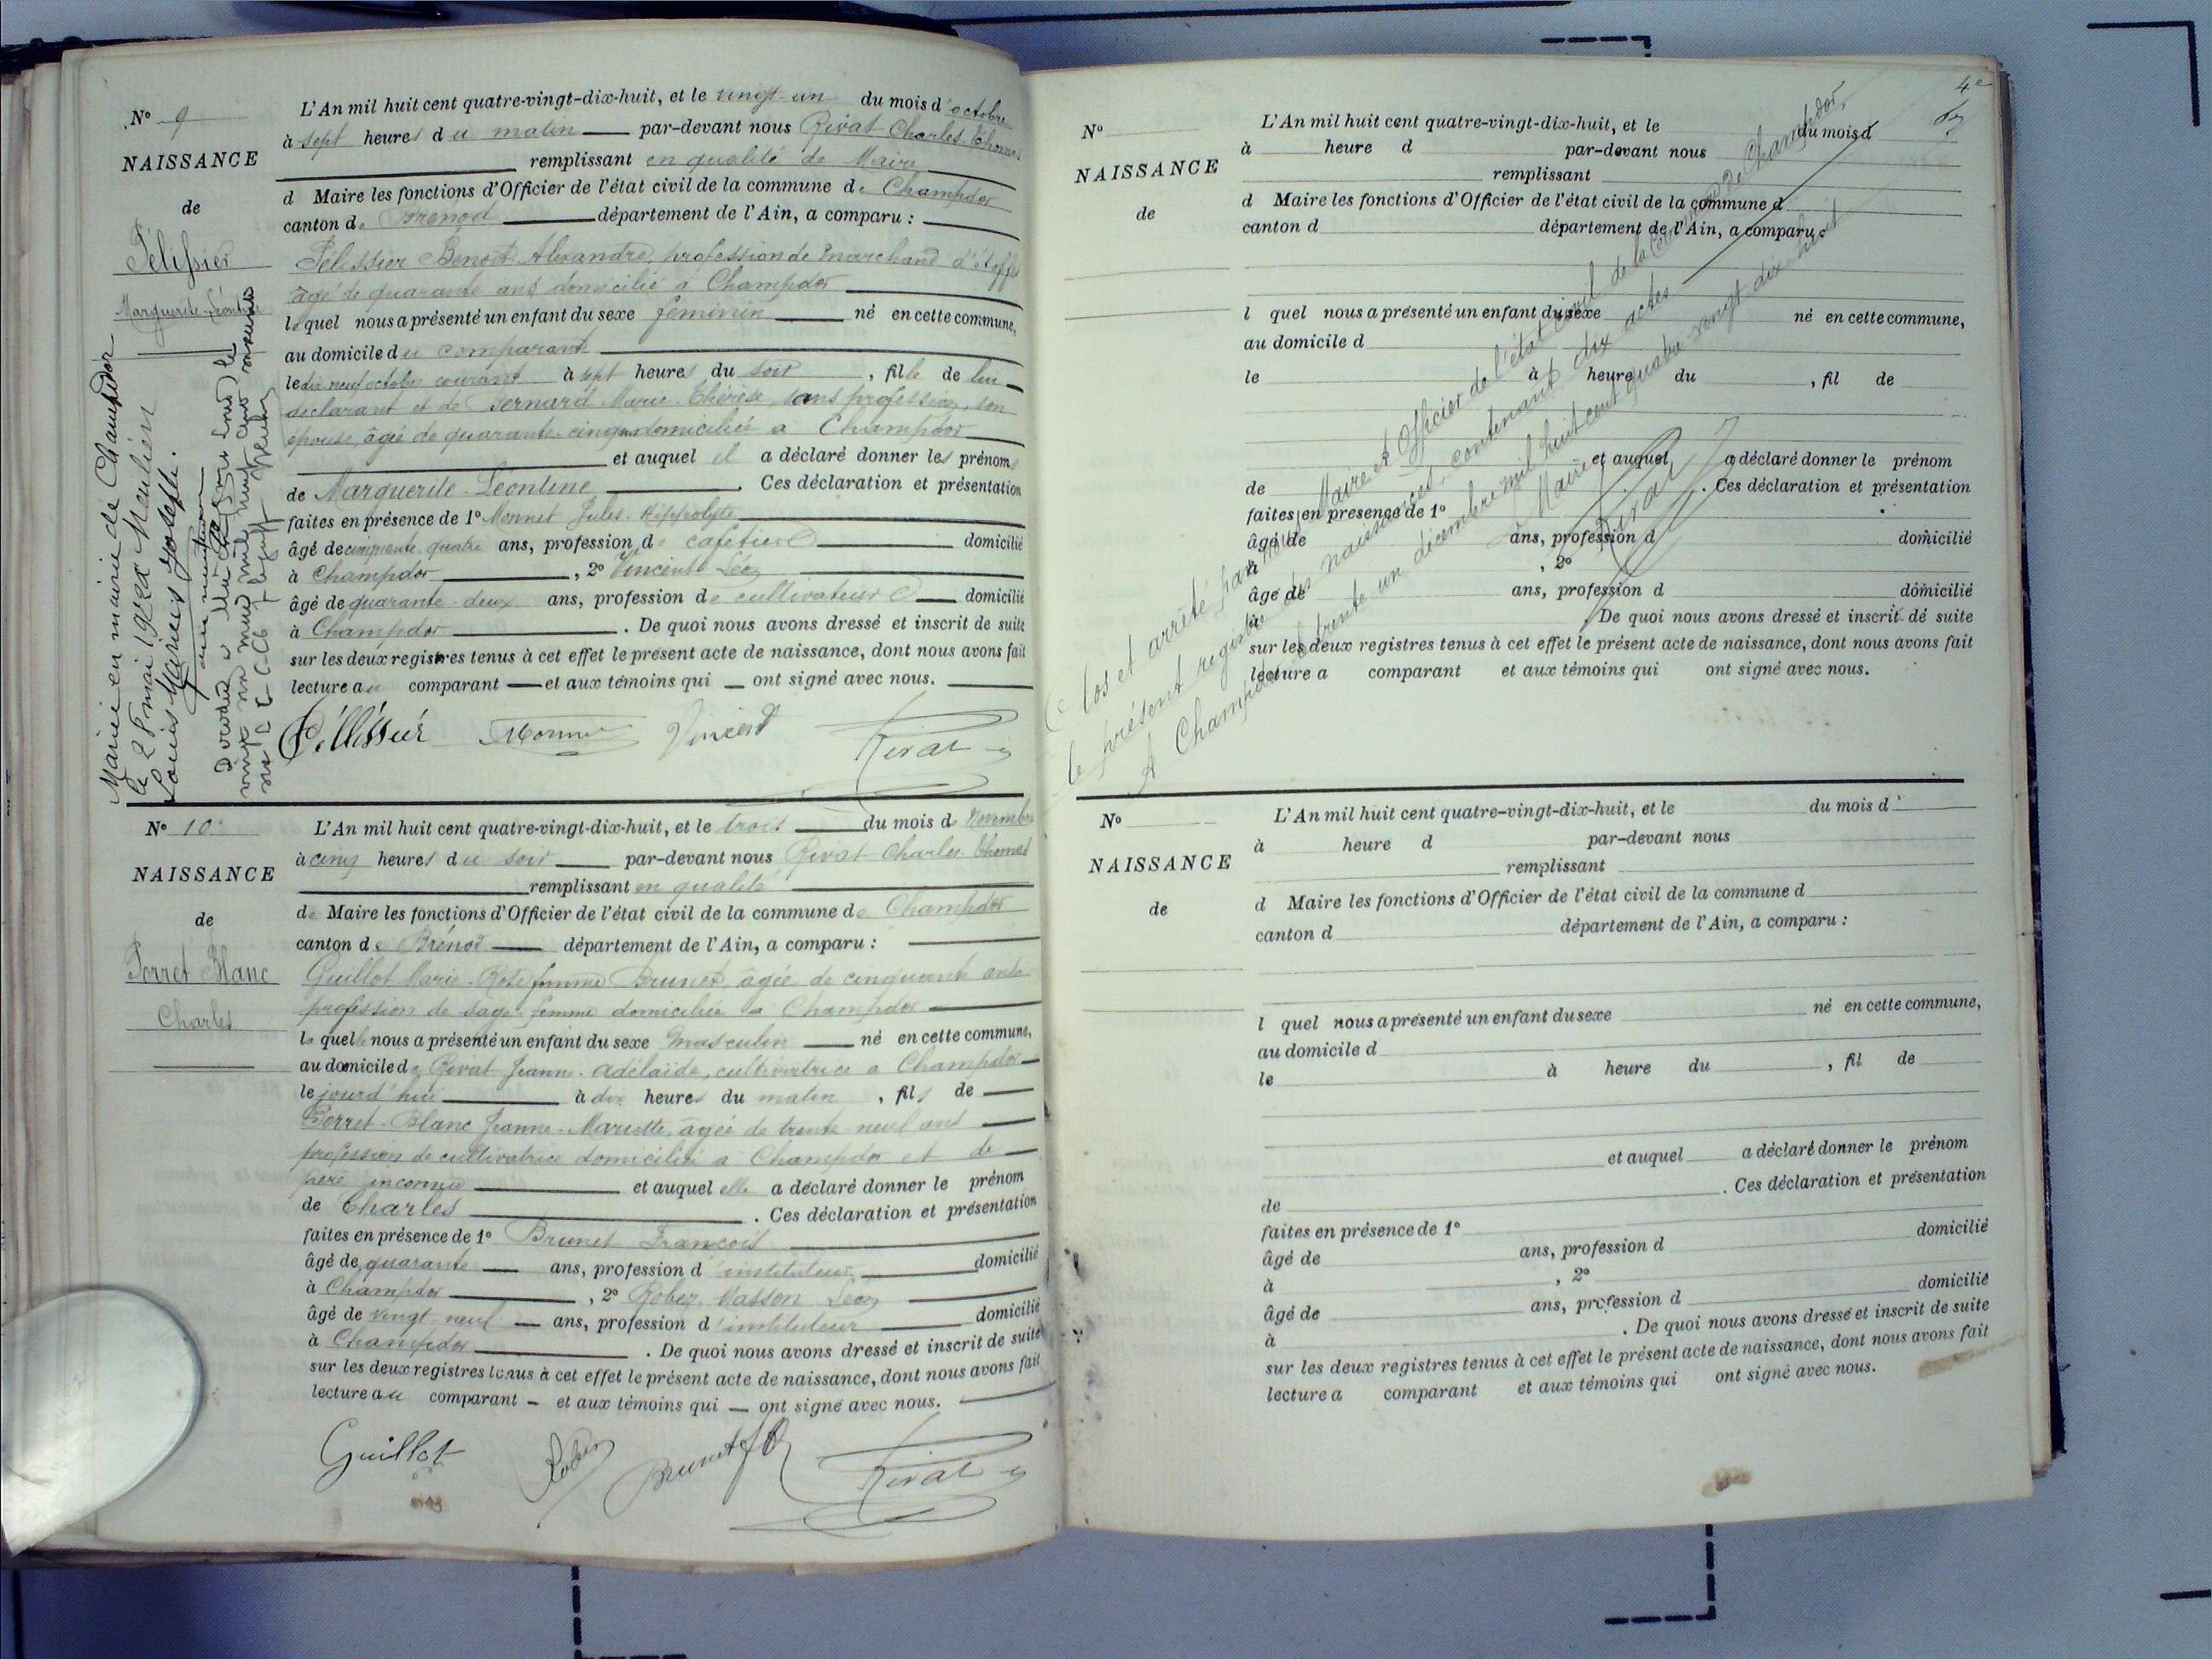 N° 9
NAISSANCE
de
Pélissier
Marguerite-Léontine
Mariée en mairie de Champdor
le 28 mai 1921 à Meulien
Louis Marius Joseph.
L'An mil huit cent quatre-vingt-dix-huit, et le vingt-un du mois d'octobre
à sept heures du matin par-devant nous Rivat Charles-Thomas
remplissant en qualité de Maire
d Maire les fonctions d'Officier de l'état civil de la commune de Champdor
canton de Brénod département de l'Ain, a comparu :
Pélissier Benoit Alexandre, profession de marchand d'étoffes
âgé de quarante ans domicilié à Champdor
lequel nous a présenté un enfant du sexe féminin né en cette commune,
au domicile du comparant
le dix neuf octobre courant à sept heures du soir, fille de lui
déclarant et de Bernard Marie-Thérèse, sans profession, son
épouse, âgée de quarante-cinq ans domiciliée à Champdor
et auquel il a déclaré donner les prénoms
de Marguerite-Léontine. Ces déclaration et présentation
faites en présence de 1° Monnet Jules-Hippolyte
âgé de cinquante quatre ans, profession de cafetier domicilié
à Champdor, 2° Vincent Léon
âgé de quarante-deux ans, profession de cultivateur domicilié
à Champdor. De quoi nous avons dressé et inscrit de suite
sur les deux registres tenus à cet effet le présent acte de naissance, dont nous avons fait
lecture au comparant et aux témoins qui ont signé avec nous.
Péllissier Monnet Vincent Rivat
N° 10
NAISSANCE
de
Perret Blanc
Charles
L'An mil huit cent quatre-vingt-dix-huit, et le trois du mois de Novembre
à cinq heures du soir par-devant nous Rivat Charles-Thomas
remplissant en qualité
de Maire les fonctions d'Officier de l'état civil de la commune de Champdor
canton de Brénod département de l'Ain, a comparu :
Guillot Marie-Rose femme Brunet, âgée de cinquante ans
profession de sage-femme domiciliée à Champdor
laquelle nous a présenté un enfant du sexe masculin né en cette commune,
au domicile de Rivat Jeanne-Adélaïde, cultivatrice à Champdor
le jourd'hui à dix heures du matin, fils de
Perret-Blanc Jeanne-Mariette, âgée de trente-neuf ans
profession de cultivatrice domiciliée à Champdor et de
père inconnu et auquel elle a déclaré donner le prénom
de Charles. Ces déclaration et présentation
faites en présence de 1° Brunet François
âgé de quarante ans, profession d'instituteur domicilié
à Champdor, 2° Robez-Masson Léon
âgé de vingt neuf ans, profession d'instituteur domicilié
à Champdor. De quoi nous avons dressé et inscrit de suite
sur les deux registres tenus à cet effet le présent acte de naissance, dont nous avons fait
lecture au comparant et aux témoins qui ont signé avec nous.
Guillot Robez Brunet Rivat
4e
N°
NAISSANCE
de
L'An mil huit cent quatre-vingt-dix-huit, et le du mois d
à heure d par-devant nous
remplissant
d Maire les fonctions d'Officier de l'état civil de la commune d
canton d département de l'Ain, a comparu :
l quel nous a présenté un enfant du sexe né en cette commune,
au domicile d
le à heure du, fil de
et auquel a déclaré donner le prénom
de. Ces déclaration et présentation
faites en présence de 1°
âgé de ans, profession d domicilié
à, 2°
âgé de ans, profession d domicilié
à. De quoi nous avons dressé et inscrit de suite
sur les deux registres tenus à cet effet le présent acte de naissance, dont nous avons fait
lecture a comparant et aux témoins qui ont signé avec nous.
Clos et arrêté par nous, Maire et Officier de l'état civil de la Commune de Champdor,
le présent registre des naissances, contenant dix actes
A Champdor le trente un décembre mil huit cent quatre-vingt-dix-huit
Le Maire
Rivat
N°
NAISSANCE
de
L'An mil huit cent quatre-vingt-dix-huit, et le du mois d
à heure d par-devant nous
remplissant
d Maire les fonctions d'Officier de l'état civil de la commune d
canton d département de l'Ain, a comparu :
l quel nous a présenté un enfant du sexe né en cette commune,
au domicile d
le à heure du, fil de
et auquel a déclaré donner le prénom
de. Ces déclaration et présentation
faites en présence de 1°
âgé de ans, profession d domicilié
à, 2°
âgé de ans, profession d domicilié
à. De quoi nous avons dressé et inscrit de suite
sur les deux registres tenus à cet effet le présent acte de naissance, dont nous avons fait
lecture a comparant et aux témoins qui ont signé avec nous.